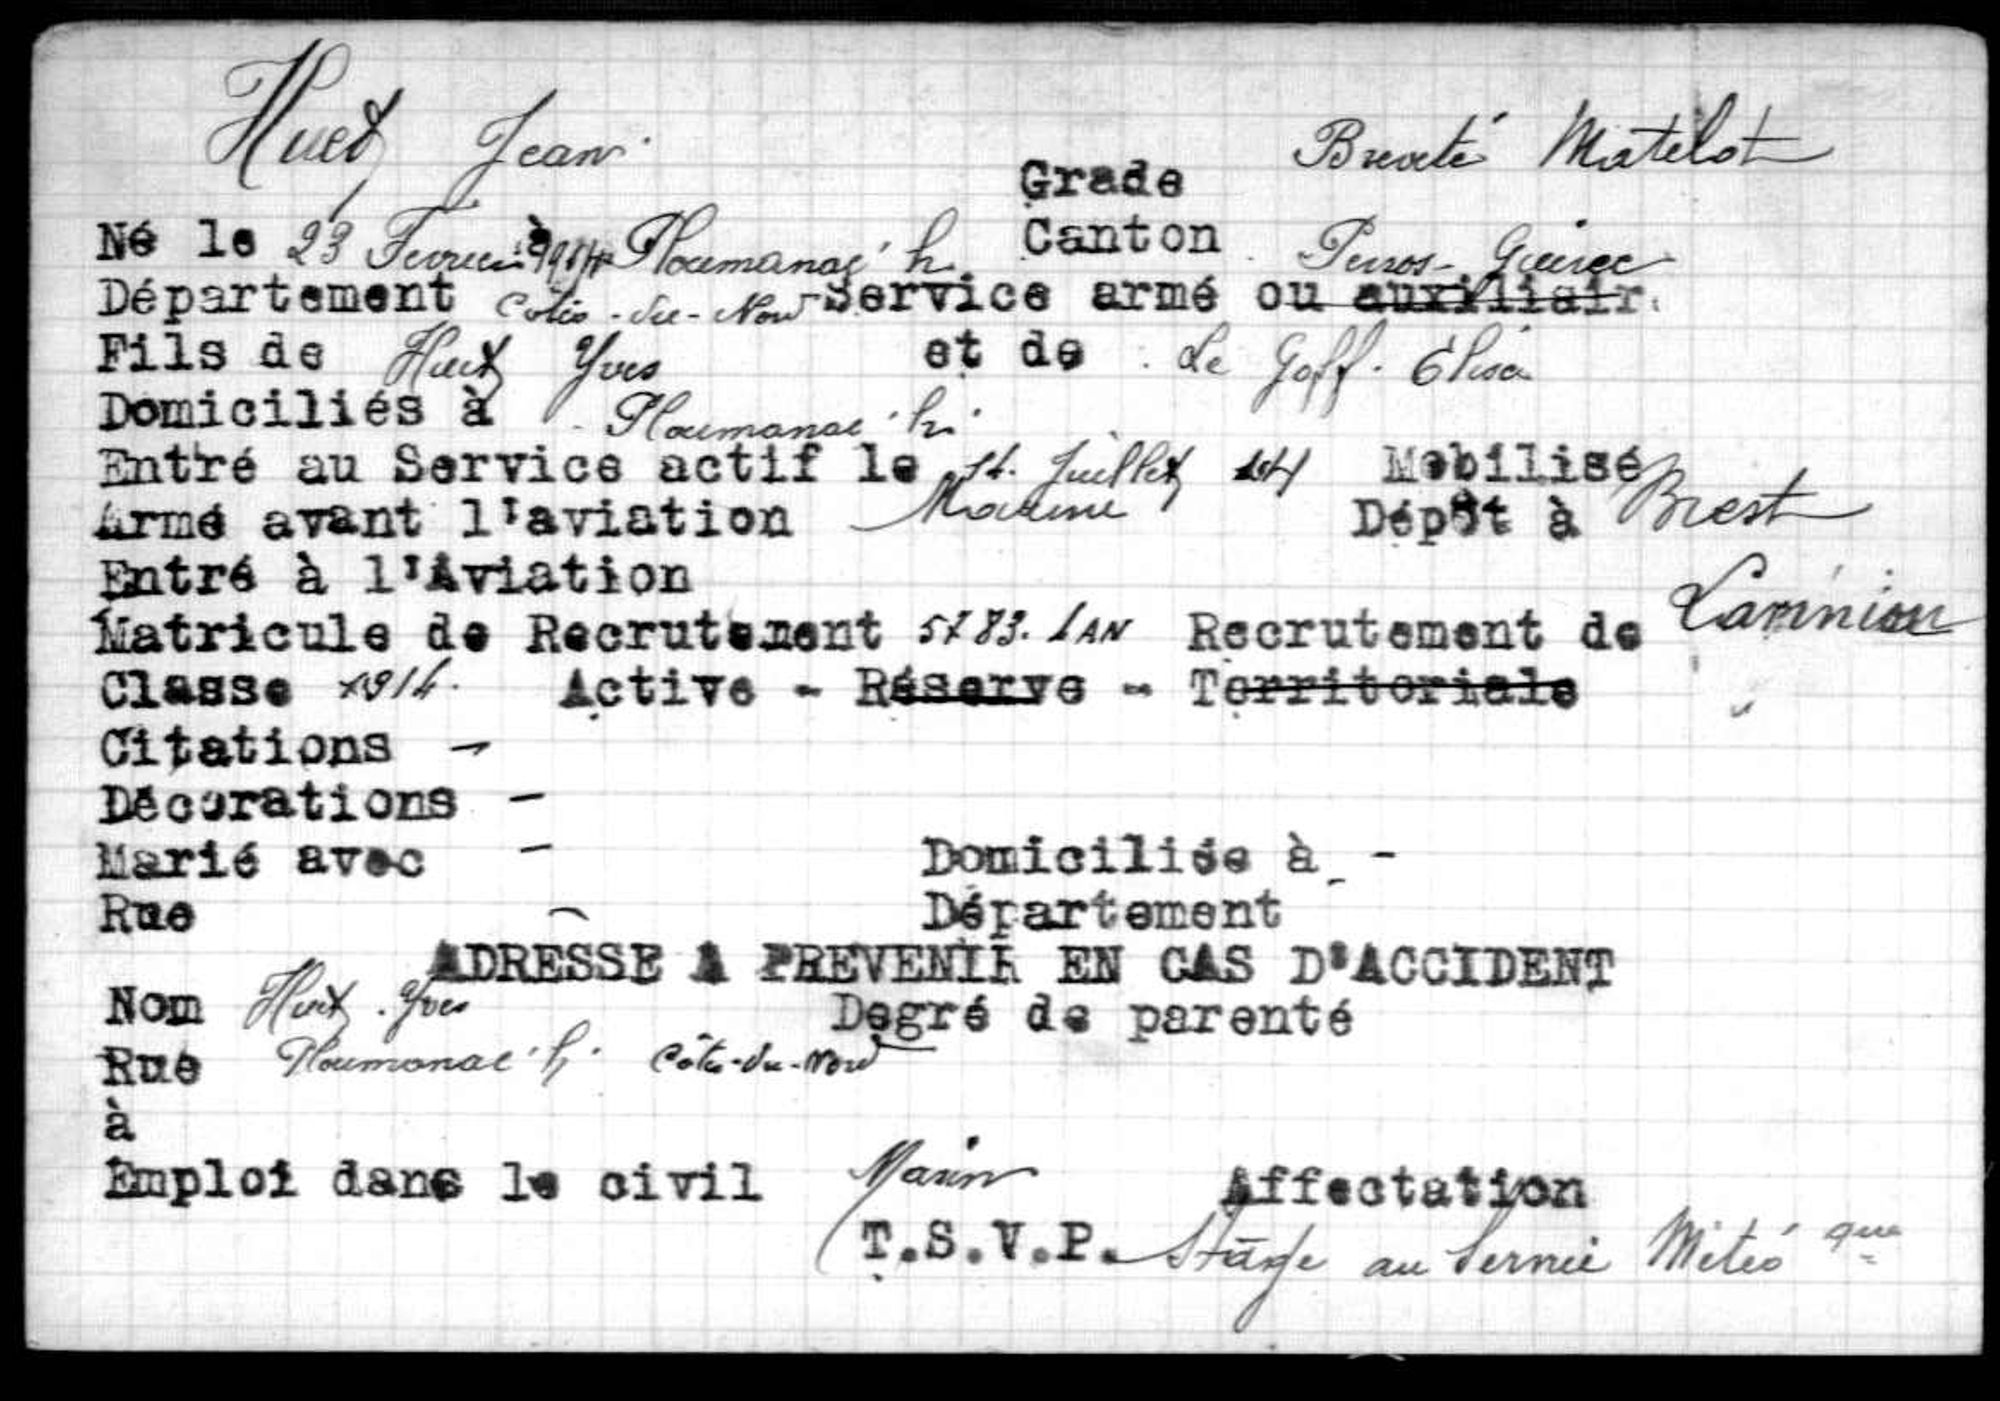 Huet Jean
Grade Breveté Matelot
Né le 23 Fevrier à Ploumanac'h Canton Perros-Guirec
Département Côtes-du-Nord Service armé ou auxiliair
Fils de Huet Yves et de Le Goff Elisa
Domiciliés à Ploumanac'h
Entré au Service actif le Juillet Mobilisé
Armé avant l'aviation Marine Dépôt à Brest
Entré à l'Aviation
Matricule de Recrutement 5783. LAN Recrutement de Lannion
Classe 1914. Active - Réserve - Territoriale
Citations -
Décorations -
Marié avec - Domiciliée à -
Rue - Département
ADRESSE A PREVENIR EN CAS D'ACCIDENT
Nom Huet. Yves Degré de parenté
Rue Ploumanac'h. Côtes-du-Nord
à
Emploi dans le civil Marin Affectation
T.S.V.P. Stage au Service Météo que